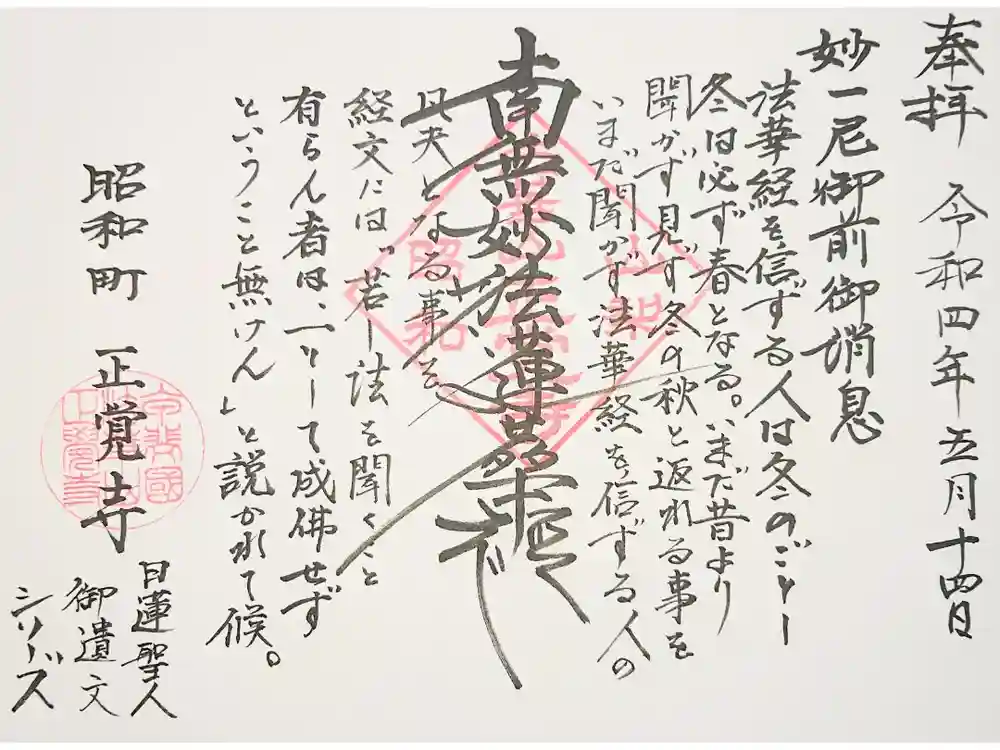 奉拝 令和四年五月十四日
妙一尼御前御消息
法華経を信ずる人は冬のごとし
冬は必ず春となる。いまだ昔より
聞かず見ず冬の秋と返れる事を
いまだ聞かず法華経を信ずる人の
南無妙法蓮華経
凡夫となる事を
経文には「若し法を聞くこと
有らん者は、一りして成佛せず
ということ無けん」と説かれて候。
昭和町 正覚寺
日蓮聖人
御遺文
シリーズ